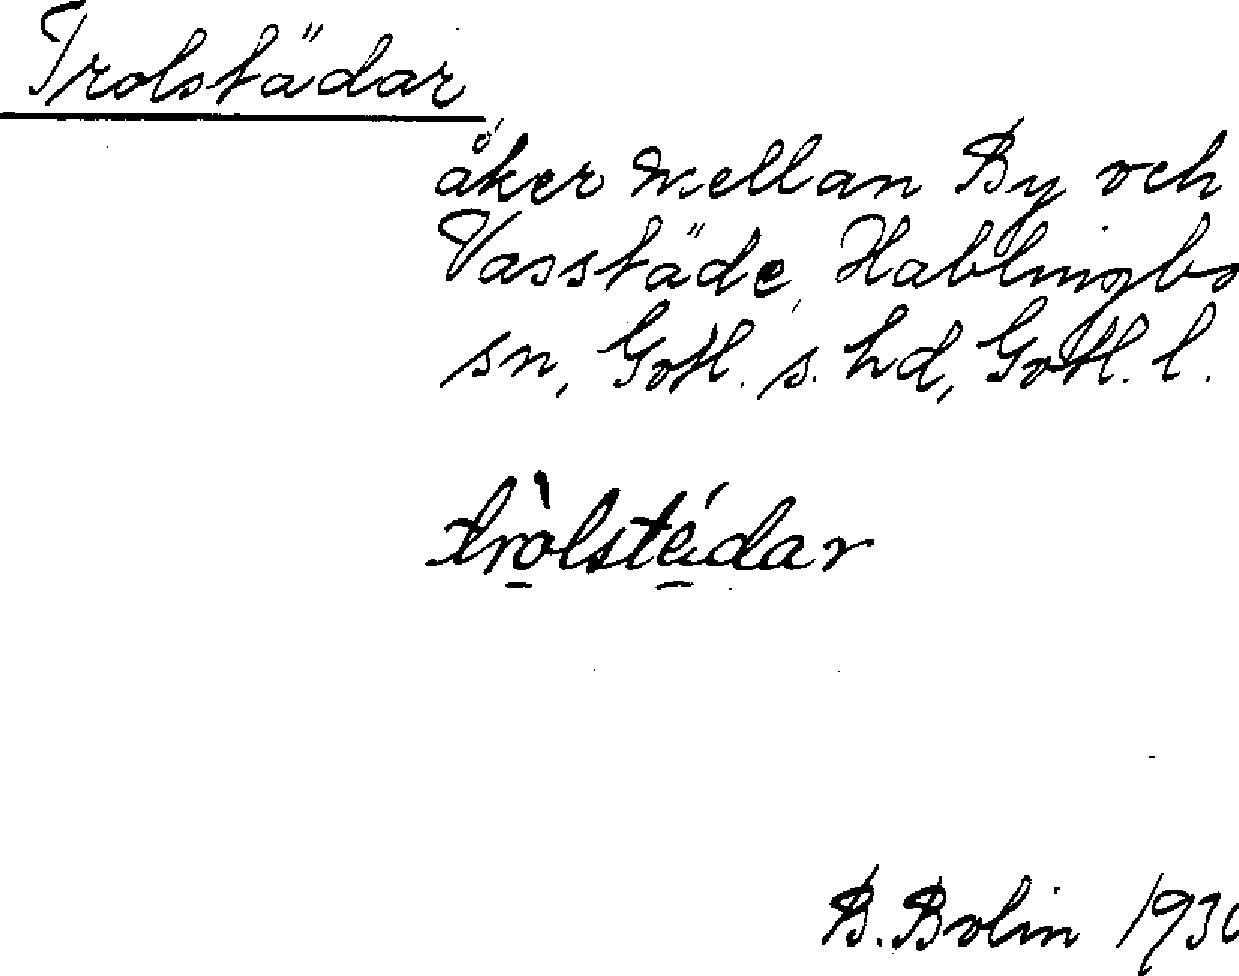 Trolstädar,
åker mellan By och
Vasstäde, Hablingbo
sn, Gotl. s. hd, Gotl. l.
tròlstédar
B. Bolin 1930